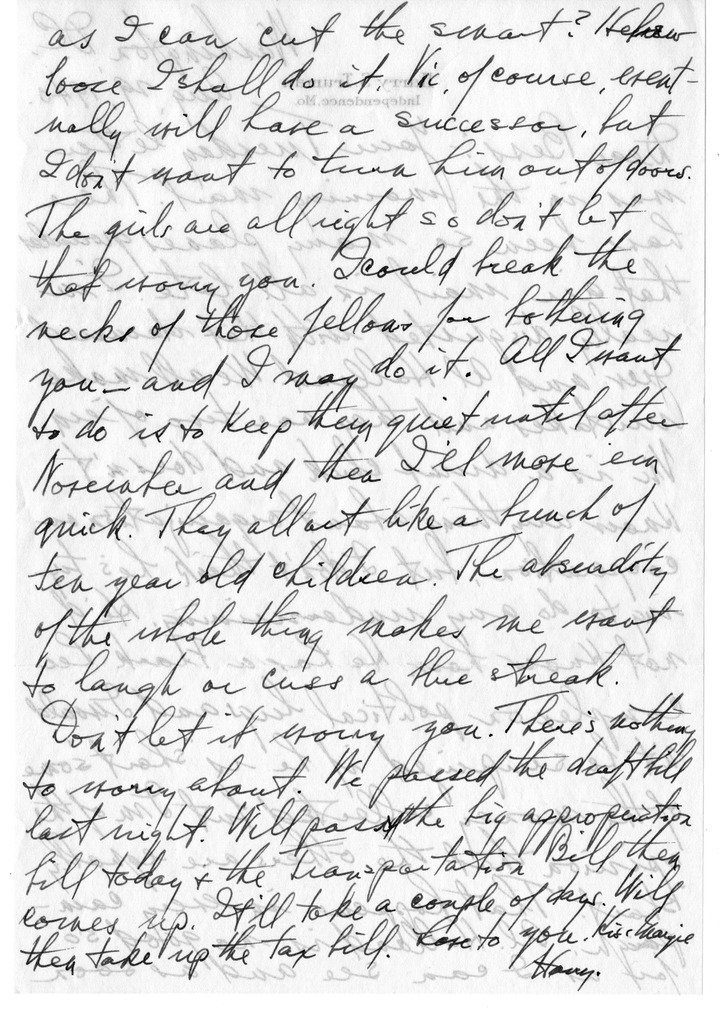 as I can cut the smart?
loose I shall do it. Vic, of course, event-
ually will have a successor, but
I don't want to turn him out of doors.
The girls are all right so don't let
that worry you. I could break the
necks of those fellows for bothering
you — and I may do it. All I want
to do is to keep them quiet until after
November and then I'll move em
quick. They all act like a bunch of
ten year old children. The absurdity
of the whole thing makes me want
to laugh or cuss a blue streak.
Don't let it worry you. There's nothing
to worry about. We passed the draft bill
last night. Will pass the big appropriation
bill today & the Transportation Bill then
comes up. It'll take a couple of days. Will
then take up the tax bill. Love to you. Kiss Margie
Harry.